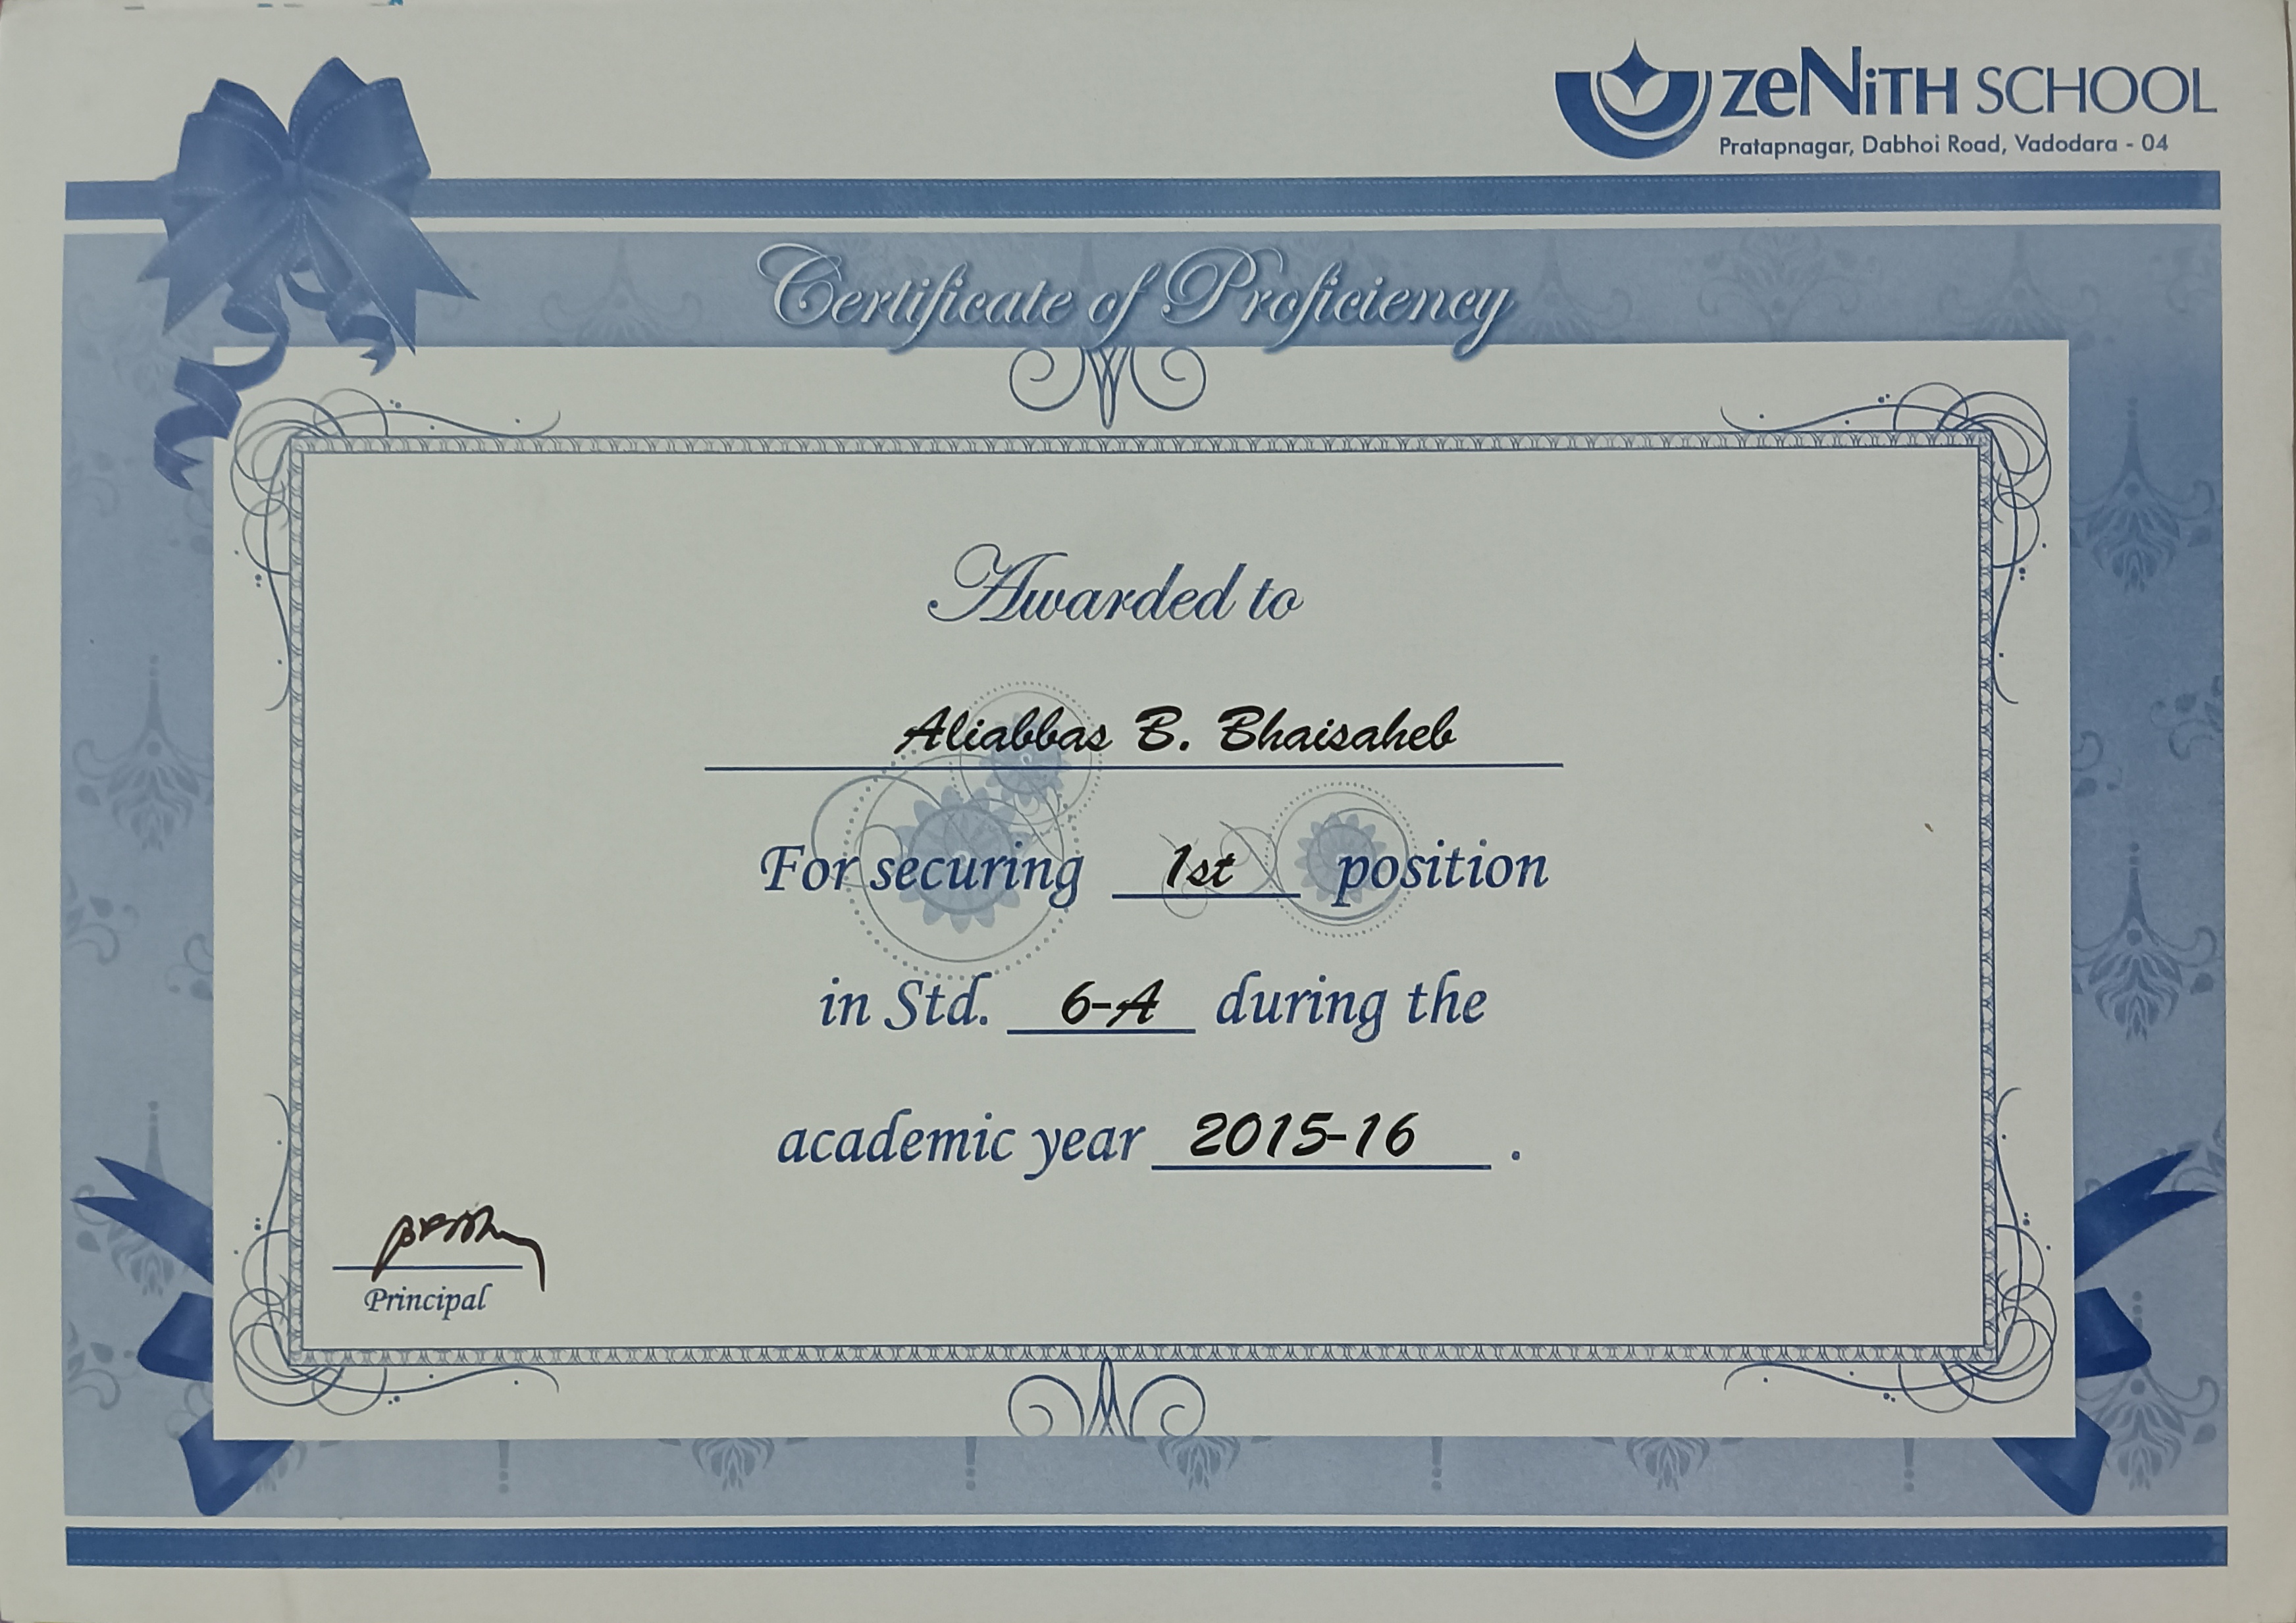 zeNiTH SCHOOL
Pratapnagar, Dabhoi Road, Vadodara - 04
Certificate of Proficiency
Awarded to
Aliabbas B. Bhaisaheb
For securing 1st position
in Std. 6-A during the
academic year 2015-16 .
Principal